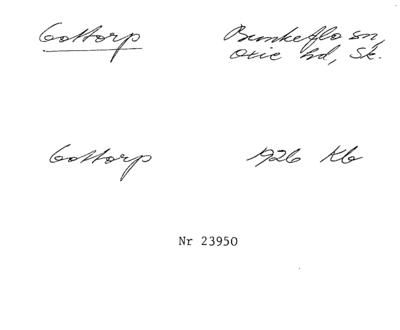 Gottorp Bunkeflo sn,
Oxie hd, Sk.
Gottorp 1926 Kb
Nr 23950